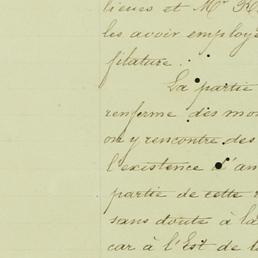 lieues et Mr R
les avoir employé
filature.
La partie
renferme des mon
on y rencontre des
l'existence d'an
partie de cette
sans doute à la
car à l'Est de l